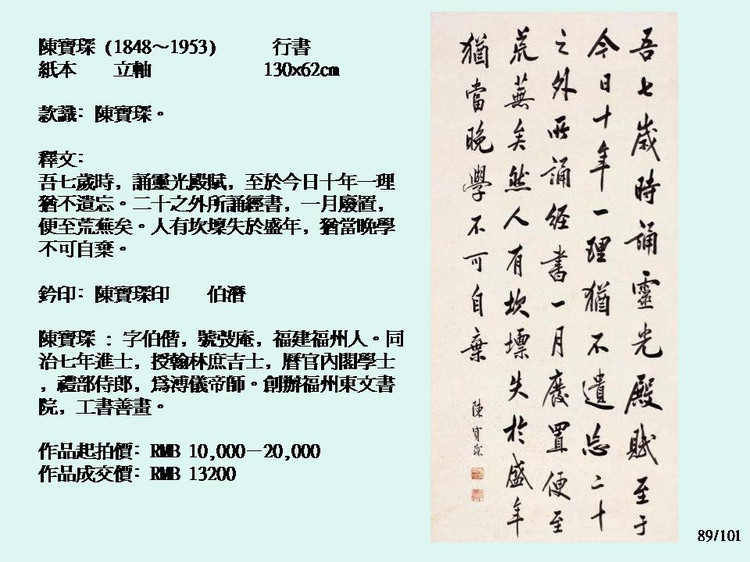 陳寶琛 (1848～1953) 行書
紙本 立軸 130x62cm
款識: 陳寶琛。
釋文:
吾七歲時, 誦靈光殿賦, 至於今日十年一理
猶不遺忘。二十之外所誦經書, 一月廢置,
便至荒蕪矣。人有坎壈失於盛年, 猶當晚學
不可自棄。
鈐印: 陳寶琛印 伯潛
陳寶琛 : 字伯偕, 號弢庵, 福建福州人。同
治七年進士, 授翰林庶吉士, 曆官內閣學士
, 禮部侍郎, 爲溥儀帝師。創辦福州東文書
院, 工書善畫。
作品起拍價: RMB 10,000－20,000
作品成交價: RMB 13200
吾七歲時誦靈光殿賦至于
今日十年一理猶不遺忘二十
之外所誦經書一月廢置便至
荒蕪矣然人有坎壈失於盛年
猶當晚學不可自棄
陳寶琛
89/101